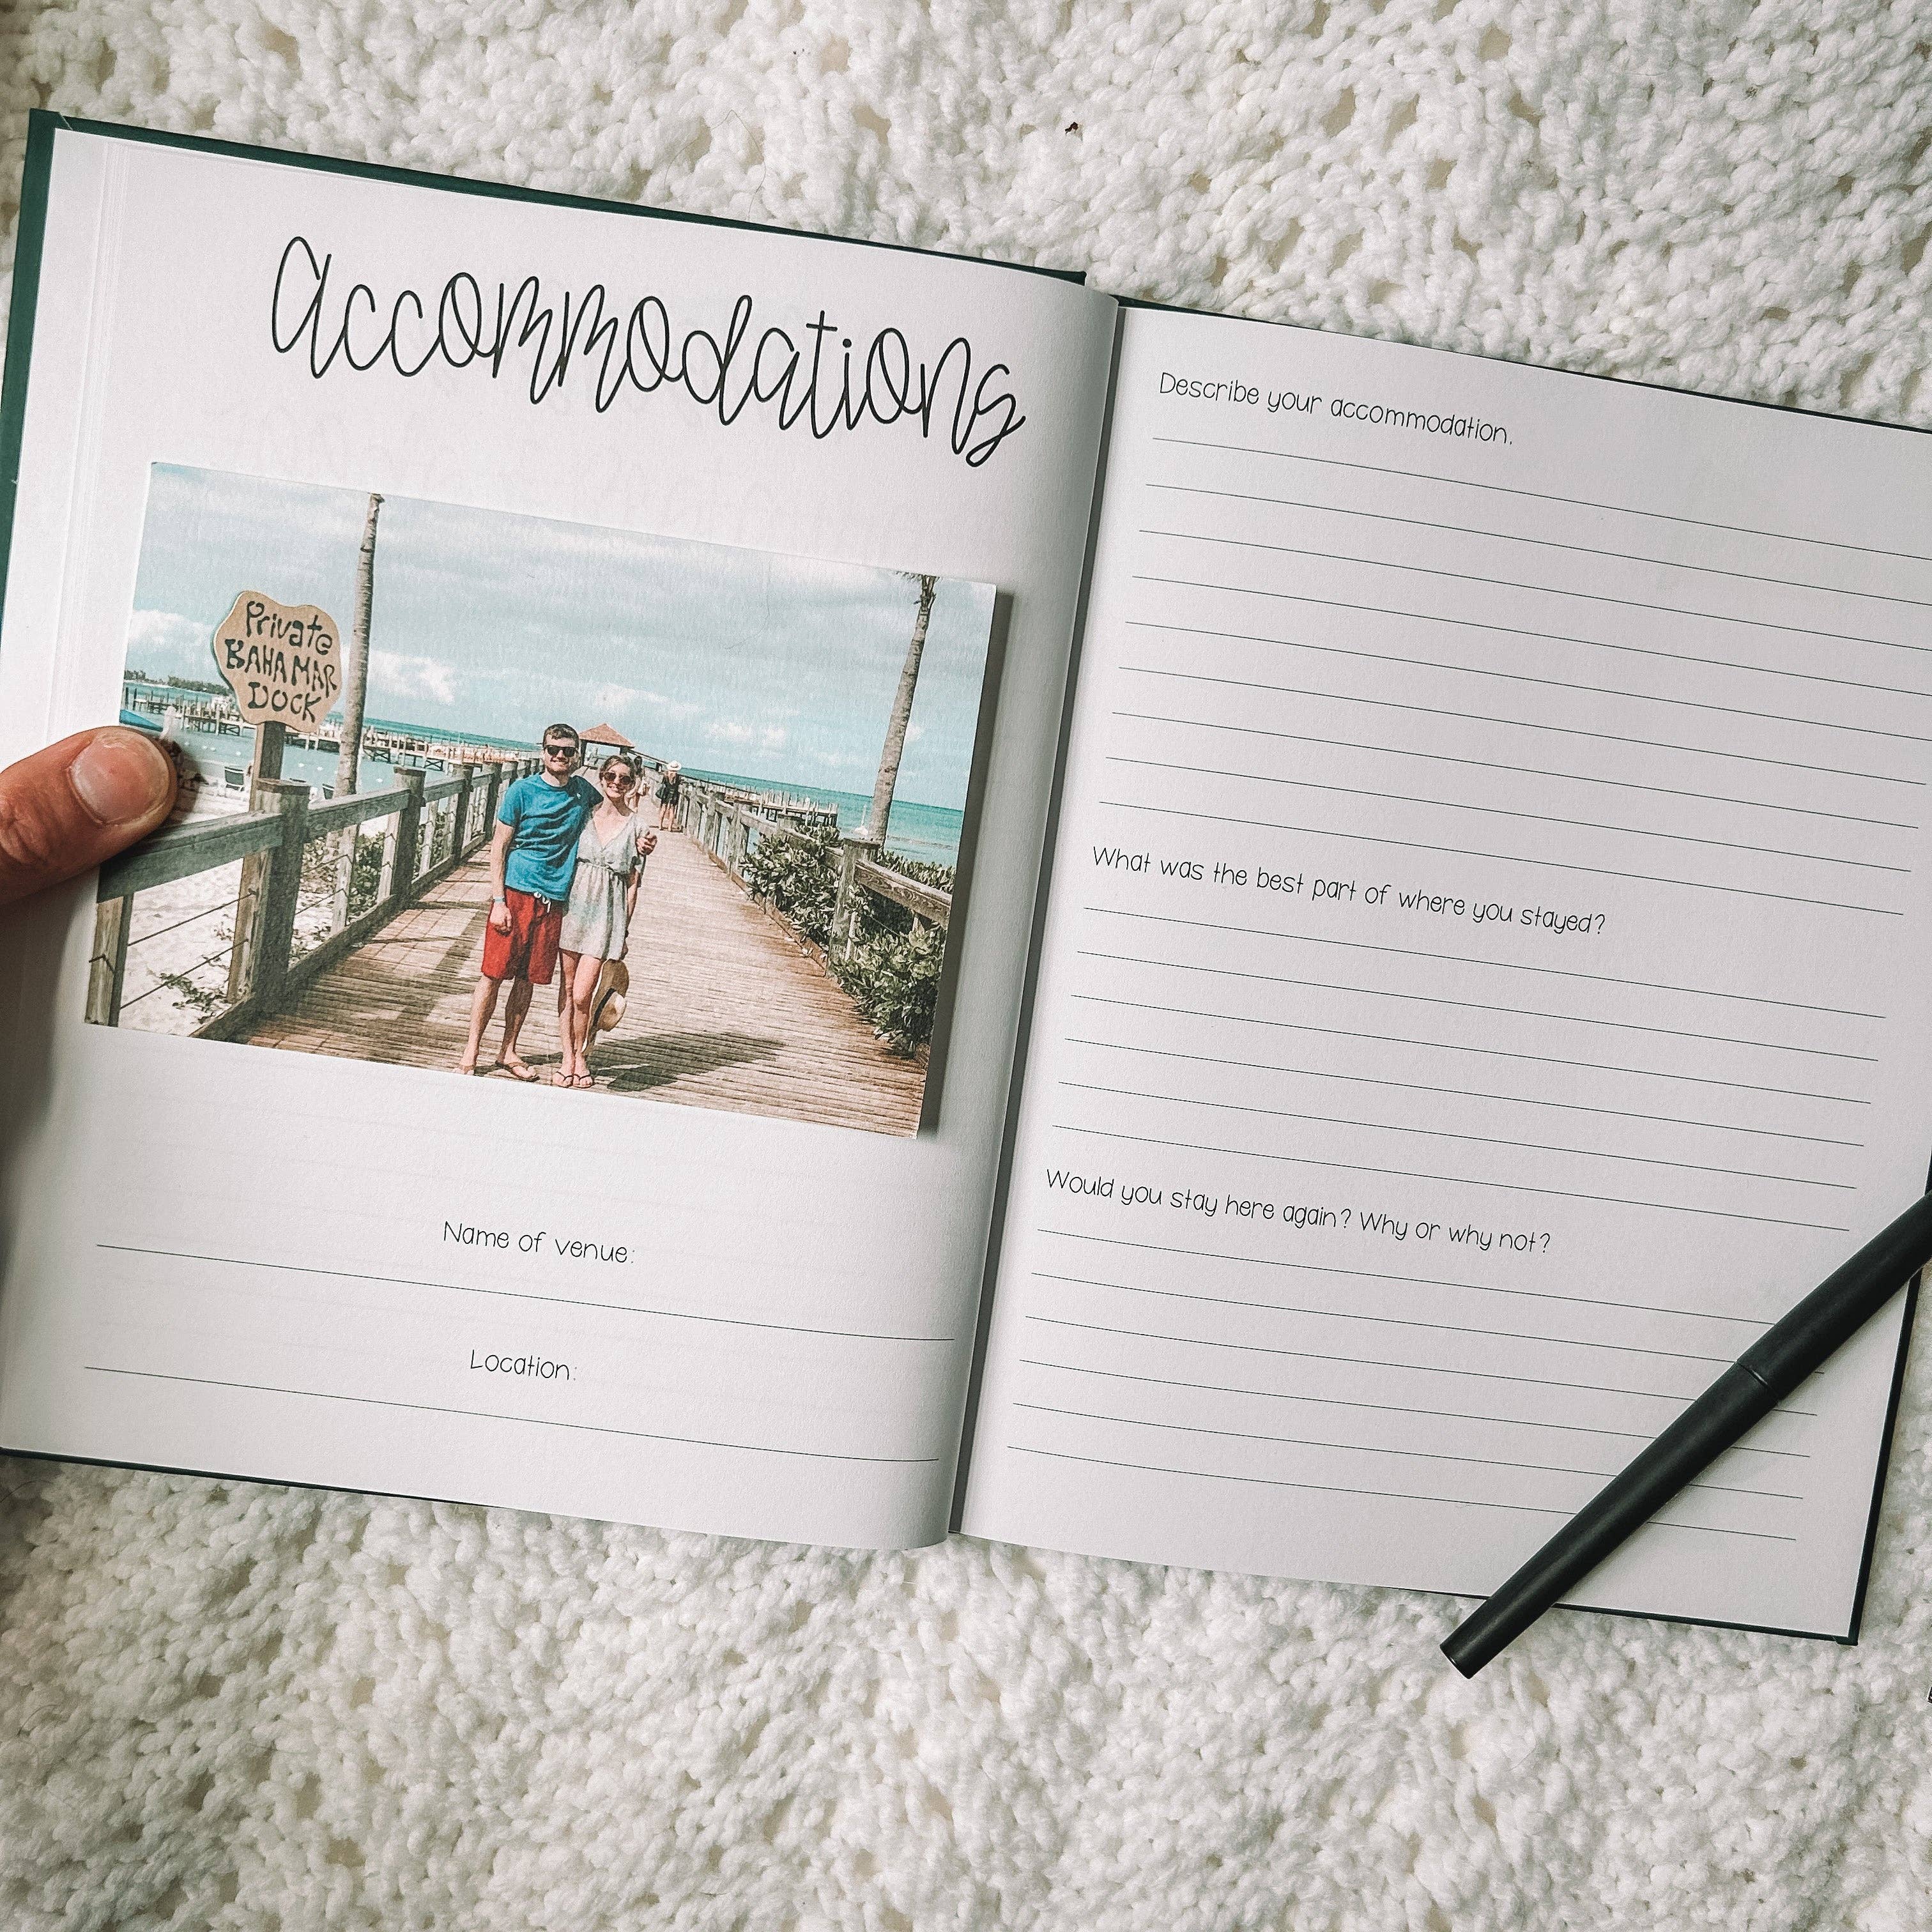 accommodations
Private
BAHAMAR
DOCK
Name of venue:
Location:
Describe your accommodation.
What was the best part of where you stayed?
Would you stay here again? Why or why not?